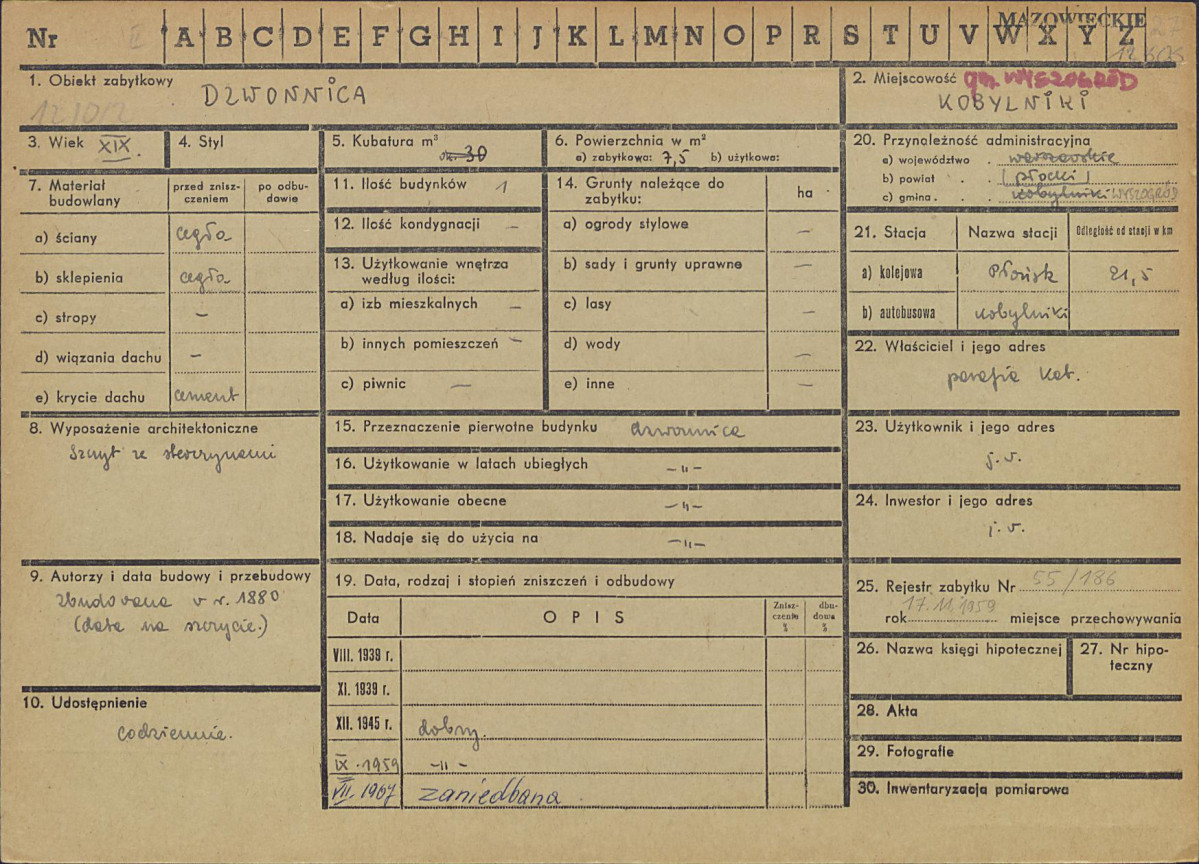 MAZOWIECKIE
Nr A B C D E F G H I J K L M N O P R S T U V W X Y Z
1. Obiekt zabytkowy
DZWONNICA
2. Miejscowość gm. WYSZOGRÓD
KOBYLNIKI
3. Wiek XIX.
4. Styl
5. Kubatura m³
ok. 30
6. Powierzchnia w m²
a) zabytkowa: 7,5 b) użytkowa:
7. Materiał budowlany
przed zniszczeniem
po odbudowie
a) ściany cegła
b) sklepienia cegła
c) stropy –
d) wiązania dachu –
e) krycie dachu cement
8. Wyposażenie architektoniczne
Szczyt ze sterczynami
9. Autorzy i data budowy i przebudowy
zbudowana w r. 1880
(data na szczycie.)
10. Udostępnienie
codziennie.
11. Ilość budynków 1
12. Ilość kondygnacji –
13. Użytkowanie wnętrza
według ilości:
a) izb mieszkalnych –
b) innych pomieszczeń –
c) piwnic –
14. Grunty należące do
zabytku:
ha
a) ogrody stylowe –
b) sady i grunty uprawne –
c) lasy –
d) wody –
e) inne –
15. Przeznaczenie pierwotne budynku dzwonnica
16. Użytkowanie w latach ubiegłych –„–
17. Użytkowanie obecne –„–
18. Nadaje się do użycia na –„–
19. Data, rodzaj i stopień zniszczeń i odbudowy
Data OPIS Zniszczenia % dbudowa %
VIII. 1938 r.
XI. 1939 r.
XII. 1945 r. dobry.
IX. 1959 –„–
VII. 1967 zaniedbana
20. Przynależność administracyjna
a) województwo . warszawskie
b) powiat . . (płocki)
c) gmina . . . Kobylniki WYSZOGRÓD
21. Stacja Nazwa stacji Odległość od stacji w km
a) kolejowa Płońsk 21,5
b) autobusowa Kobylniki
22. Właściciel i jego adres
parafia kat.
23. Użytkownik i jego adres
j.w.
24. Inwestor i jego adres
j.w.
25. Rejestr zabytku Nr 55/186
17.11.1959
rok miejsce przechowywania
26. Nazwa księgi hipotecznej
27. Nr hipoteczny
28. Akta
29. Fotografie
30. Inwentaryzacja pomiarowa